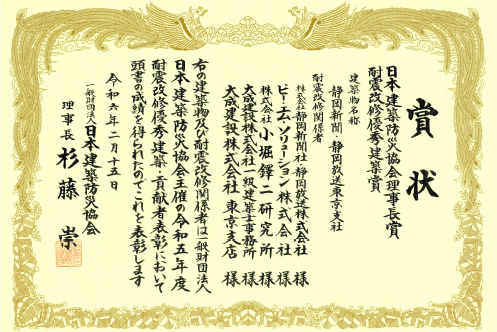 賞状
日本建築防災協会理事長賞
耐震改修優秀建築賞
建築物名称
静岡新聞・静岡放送東京支社
耐震改修関係者
株式会社静岡新聞社・静岡放送株式会社 様
ピー・エム・ソリューション株式会社 様
株式会社 小堀鐸二研究所 様
大成建設株式会社一級建築士事務所 様
大成建設株式会社 東京支店 様
右の建築物及び耐震改修関係者は一般財団法人
日本建築防災協会主催の令和五年度
耐震改修優秀建築・貢献者表彰において
頭書の成績を得られたのでこれを表彰します
令和六年二月十五日
一般財団法人 日本建築防災協会
理事長 杉藤 崇